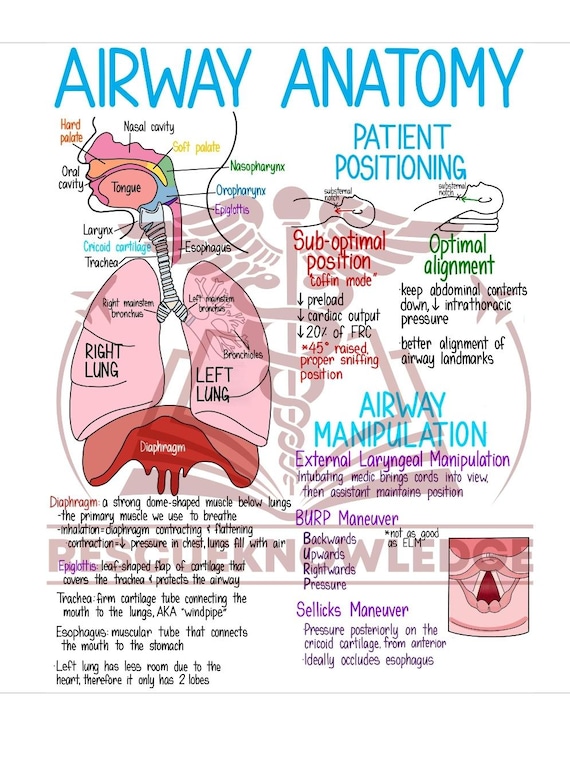 AIRWAY ANATOMY
Hard
palate
Nasal cavity
Soft palate
Nasopharynx
Oral
cavity
Tongue
Oropharynx
Epiglottis
Larynx
Cricoid cartilage
Trachea
Esophagus
Right mainstem
bronchus
Left mainstem
bronchus
Bronchioles
RIGHT
LUNG
LEFT
LUNG
Diaphragm
Diaphragm: a strong dome-shaped muscle below lungs
-the primary muscle we use to breathe
-inhalation=diaphragm contracting & flattening
contraction=↓ pressure in chest, lungs fill with air
Epiglottis: leaf-shaped flap of cartilage that
covers the trachea & protects the airway
Trachea: firm cartilage tube connecting the
mouth to the lungs, AKA "windpipe"
Esophagus: muscular tube that connects
the mouth to the stomach
·Left lung has less room due to the
heart, therefore it only has 2 lobes
PATIENT
POSITIONING
substernal
notch
substernal
notch
Sub-optimal
position
"coffin mode"
↓ preload
↓ cardiac output
↓ 20% of FRC
*45° raised,
proper sniffing
position
Optimal
alignment
·keep abdominal contents
down, ↓ intrathoracic
pressure
·better alignment of
airway landmarks
AIRWAY
MANIPULATION
External Laryngeal Manipulation
·Intubating medic brings cords into view,
then assistant maintains position
BURP Maneuver
Backwards
Upwards
Rightwards
Pressure
*not as good
as ELM*
Sellicks Maneuver
·Pressure posteriorly on the
cricoid cartilage, from anterior
·Ideally occludes esophagus
RESCUEKNOWLEDGE